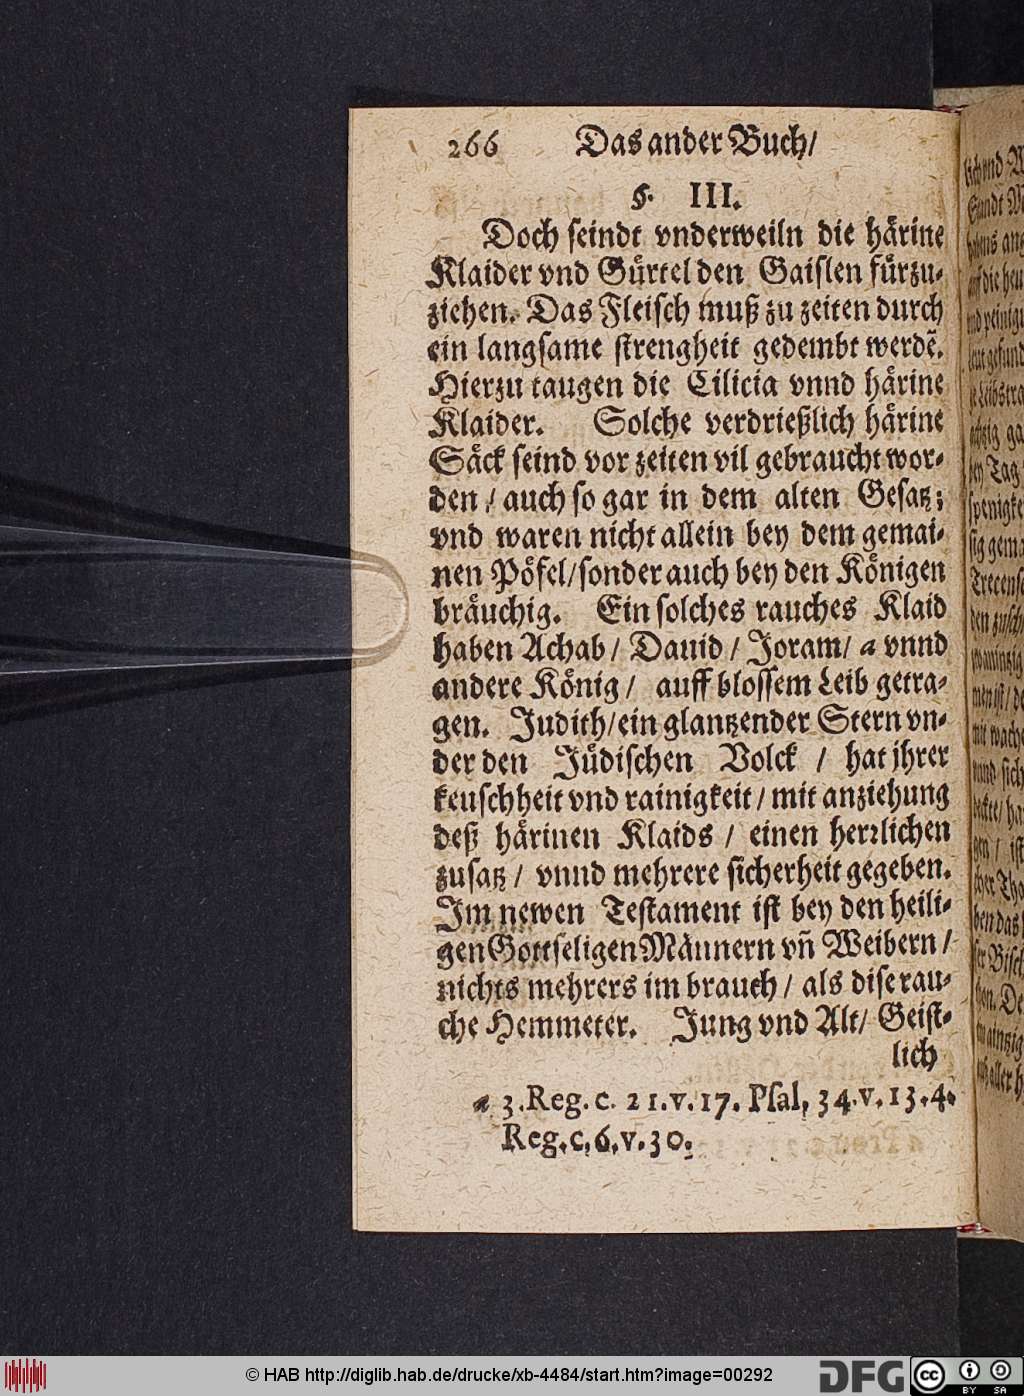 266 Das ander Buch/
§. III.
Doch seindt vnderweiln die härine
Klaider vnd Gürtel den Gaislen fürzu-
ziehen. Das Fleisch muß zu zeiten durch
ein langsame strengheit gedembt werdẽ.
Hierzu taugen die Cilicia vnnd härine
Klaider. Solche verdrießlich härine
Säck seind vor zeiten vil gebraucht wor-
den / auch so gar in dem alten Gesatz;
vnd waren nicht allein bey dem gemai-
nen Pöfel/sonder auch bey den Königen
bräuchig. Ein solches rauches Klaid
haben Achab / Dauid / Joram/ a vnnd
andere König / auff blossem Leib getra-
gen. Judith/ein glantzender Stern vn-
der den Jüdischen Volck / hat jhrer
keuschheit vnd rainigkeit / mit anziehung
deß härinen Klaids / einen herrlichen
zusatz / vnnd mehrere sicherheit gegeben.
Im newen Testament ist bey den heili-
gen Gottseligen Männern vñ Weibern /
nichts mehrers im brauch / als dise rau-
che Hemmeter. Jung vnd Alt/ Geist-
lich
a 3.Reg.c. 21.v.17. Psal, 34.v.13.4.
Reg.c,6.v.30.
© HAB http://diglib.hab.de/drucke/xb-4484/start.htm?image=00292
DFG
cc
BY SA